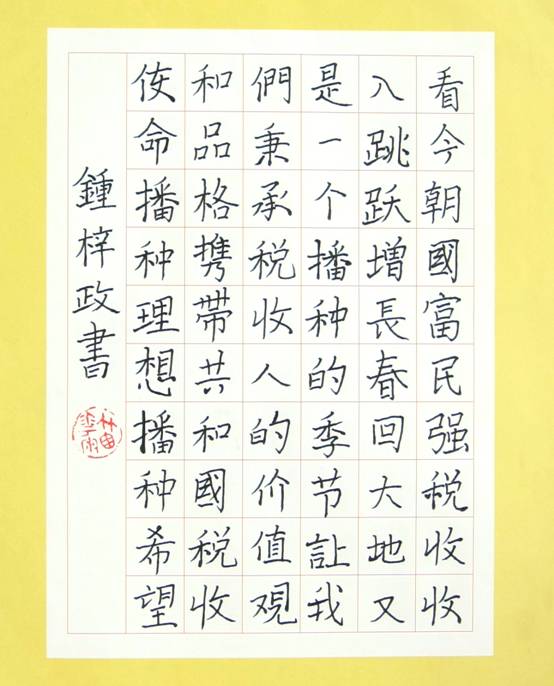 看今朝國富民强税收收
入跳跃增長春回大地又
是一个播种的季节让我
們秉承税收人的价值观
和品格携帶共和國税收
使命播种理想播种希望
鍾梓政書